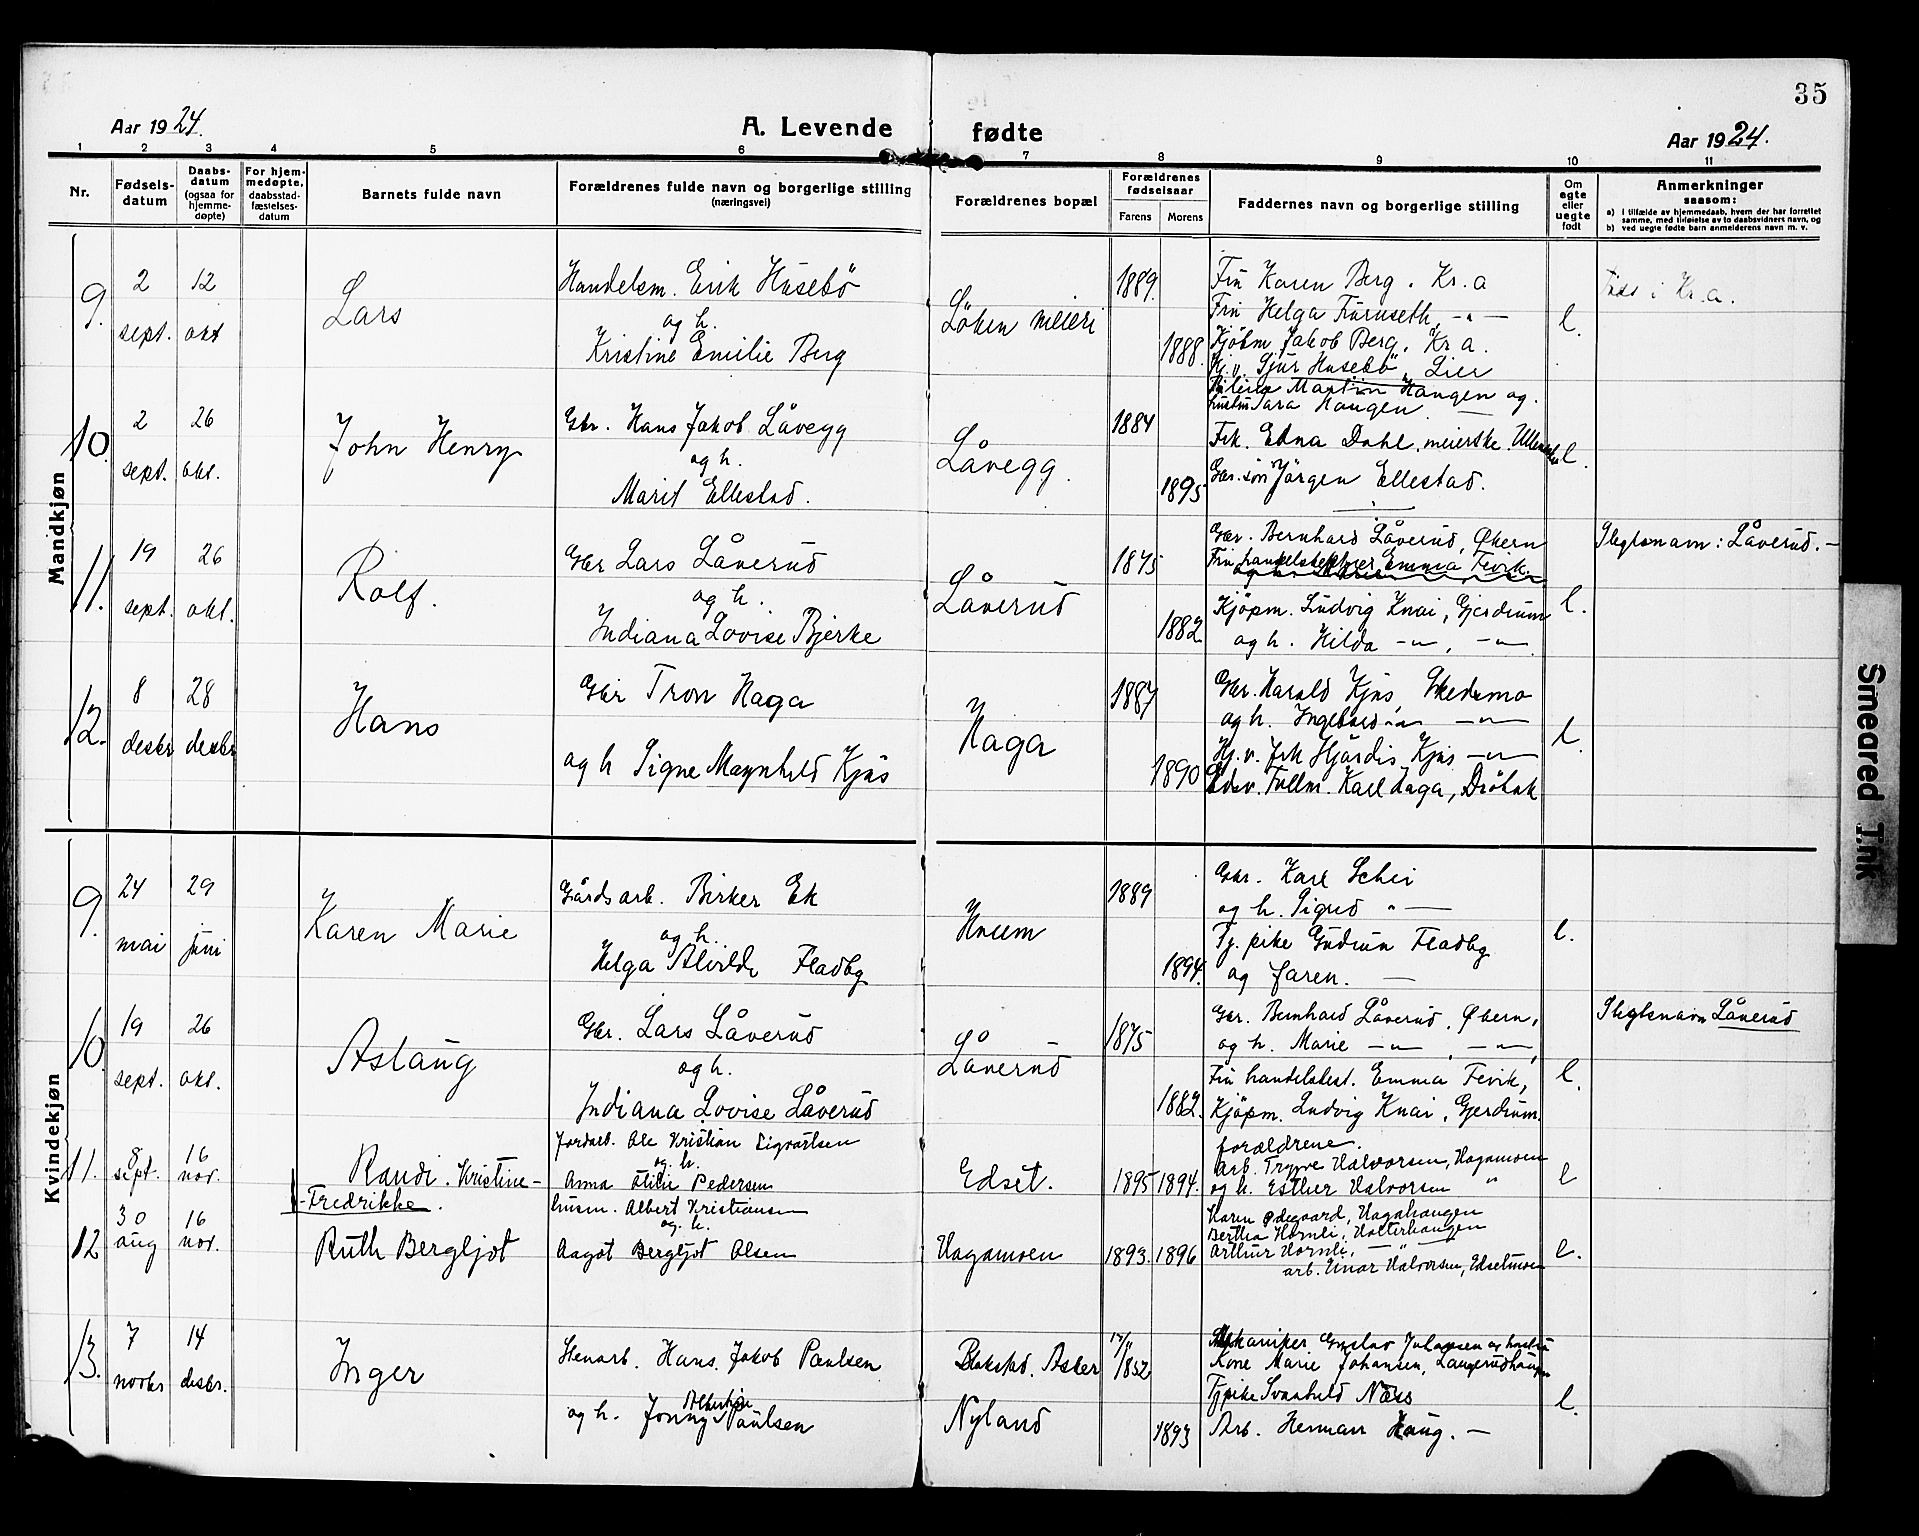 35
Aar 1924.
A. Levende fødte
Aar 1924.
1 2 3 4 5 6 7 8 9 10 11
Nr.
Fødsels-datum
Daabs-datum (ogsaa for hjemme-døpte)
For hjem-medøpte, daabsstad-fæstelses-datum
Barnets fulde navn
Forældrenes fulde navn og borgerlige stilling
(næringsvei)
Forældrenes bopæl
Forældrenes fødselsaar
Farens Morens
Faddernes navn og borgerlige stilling
Om egte eller uegte født
Anmerkninger
saasom:
a) i tilfælde av hjemmedaab, hvem der har forrettet
samme, med tilføielse av to daabsvidners navn, og
b) ved uegte fødte barn anmelderens navn m. v.
Mandkjøn
9. 2 sept. 12 okt
Lars
Handelsm. Erik Husebö
og h.
Kristine Emilie Berg
Löken meieri
1889.
1888.
Frü Karen Berg. Kr.a
Frü Helga Füruseth -"-
Kjöbm Jakob Berg. Kr a.
Sjur Husebö, Lier
Martin Haugen og
hustru Sara Haugen
e.
Födt i Kr.a.
10. 2 sept. 26 okt.
John Henry
Gbr. Hans Jakob Låvegg
og h.
Marit Ellestad.
Låvegg.
1884
1895
Frk. Edna Dahl, meierske.
Gbr. sön Jörgen Ellestad.
e.
11. 19 sept. 26 okt.
Rolf.
Gbr Lars Låverud
og h.
Indiana Lovise Bjerke
Låverud
1875
1882
Gbr. Bernhard Låverud, Øbern
Frü handelsbestyrer Emma Fevik.
Kjöpm. Ludvig Knai, Gjerdrum
og h. Hilda -"-, -"-
e.
Slegtsnavn: Låverud.-
12. 8 desbr 28 desbr
Hans
Gbr Tron Haga
og h Signe Magnhild Kjus
Haga
1887
1890
Gbr. Harald Kjus, Skedsmo
og h. Ingeborg -"- -"-
Hj. v. Frk Hjördis Kjus -"-
Tollm. Karl Haga, Dröbak
e.
Kvindekjøn
9. 24 mai 29 juni
Karen Marie
Gårdsarb. Birker Ek
og h.
Helga Alvilde Fladby
Hneem
1889
1894.
Gbr. Karl Schei
og h. Sigrid " -
Tj. pike Gudrun Fladby
og faren. -
e.
10. 19 sept. 26 okt.
Aslaug
Gbr. Lars Låverud
og h.
Indiana Lovise Låverud
Låverud
1875
1882.
Gbr. Bernhard Låverud, Øbern,
og h. Marie -"-, -"-,
Frü handelsbest. Emma Fevik,
Kjöpm. Ludvig Knai, Gjerdrum.
forældrene.
e.
Slegtsnavn Låverud
11. 8 sept. 16 nov.
Randi. Kristine-
-Fredrikke.
Jordarb. Ole Kristian Sigvartsen
og. h.
Anna Otilie Pedersen
Edset.
1895 1894.
Arb. Trygve Halvorsen, Hagamoen
og h. Esther Halvorsen "
e
12 30 aug 16 nov.
Ruth Bergljot
husm. Albert Kristiansen
og. h.
Aagot Bergljot Olsen
Hagamoen
1893. 1896
Karen Ødegaard, Hagahaugen
Bertha Hornli, Holterhaugen
Arthur Hornli, - " -
arb. Einar Halvorsen, Edsetmoen
e.
13. 7 novbr 14 desbr.
Inger
Stenarb. Hans Jakob Paulsen
og h. Jonny Albertine Paulsen
Blakstad. Asker
Nyland
17/11 1852
1893
Mekaniker Gustav Julausen og hustru
Kone Marie Johansen, Langerudhaugen
Tjpike Svanhild Næss
Arb. Herman Haug. -
e.
Smeared Ink